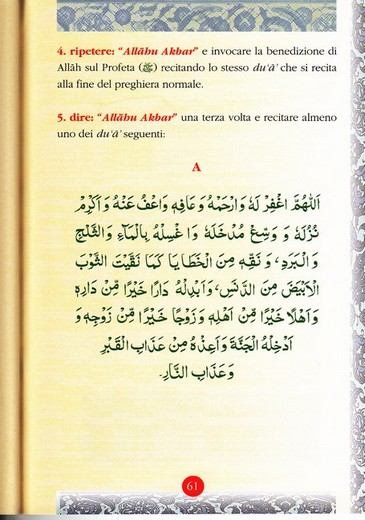 4. ripetere: “Allāhu Akbar” e invocare la benedizione di
Allāh sul Profeta (ﷺ) recitando lo stesso du‘ā’ che si recita
alla fine del preghiera normale.
5. dire: “Allāhu Akbar” una terza volta e recitare almeno
uno dei du‘ā’ seguenti:
A
اَللّٰهُمَّ اغْفِرْ لَهُ وَارْحَمْهُ وَ عَافِهِ وَاعْفُ عَنْهُ وَ اَكْرِمْ
نُزُلَهُ وَ وَسِّعْ مُدْخَلَهُ وَ اغْسِلْهُ بِالْمَاءِ وَالثَّلْجِ
وَ الْبَرَدِ، وَ نَقِّهِ مِنَ الْخَطَايَا كَمَا نَقَّيْتَ الثَّوْبَ
الْاَبْيَضَ مِنَ الدَّنَسِ، وَاَبْدِلْهُ دَارًا خَيْرًا مِّنْ دَارِهِ
وَاَهْلًا خَيْرًا مِّنْ اَهْلِهِ وَ زَوْجًا خَيْرًا مِّنْ زَوْجِهِ وَ
اَدْخِلْهُ الْجَنَّةَ وَ اَعِذْهُ مِنْ عَذَابِ الْقَبْرِ
وَ عَذَابِ النَّارِ.
61